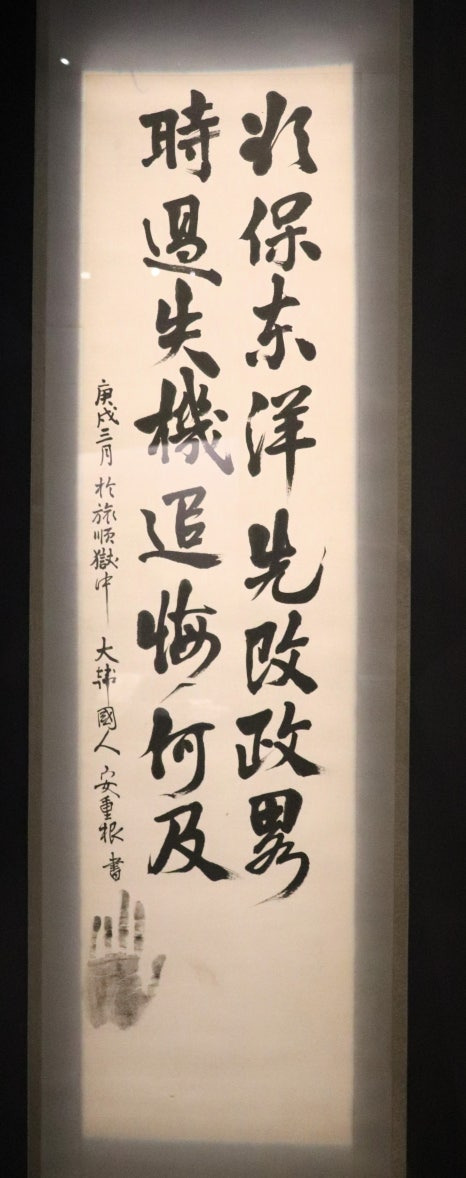 欲保东洋先改政畧
時過失機追悔何及
庚戌三月 於旅順獄中 大韓國人 安重根 書